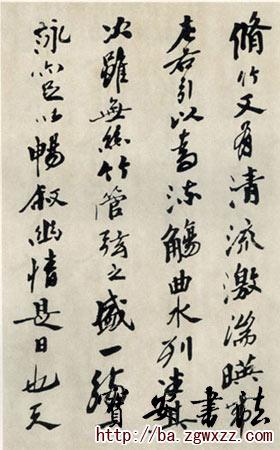 脩竹又有清流激湍暎
左右引以為流觴曲水列坐其
次雖無絲竹管弦之盛一觴
詠亦足以暢敘幽情是日也天
書法
http://ba.zgwxzz.com